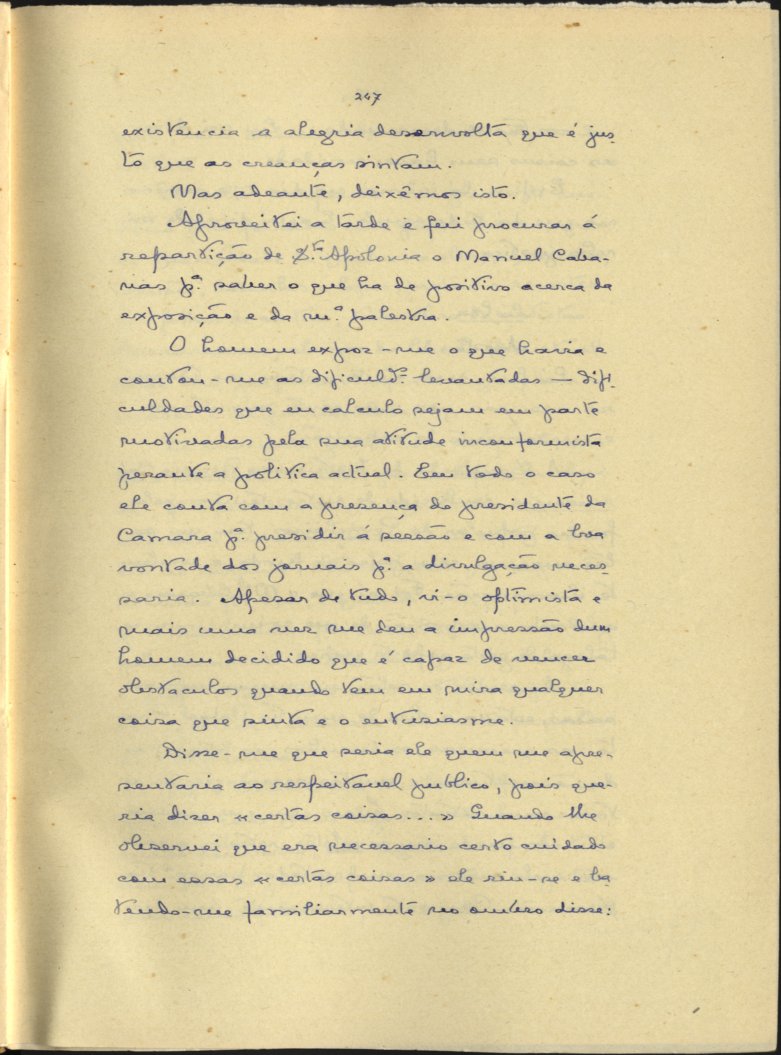 247
existencia a alegria desenvolta que é jus-
to que as creanças sintam.
Mas adeante, deixêmos isto.
Aproveitei a tarde e fui procurar á
repartição de S.ta Apolonia o Manuel Caba-
nas p.ª saber o que ha de positivo acerca da
exposição e da m.ª palestra.
O homem expoz-me o que havia e
contou-me as dificuld.es levantadas — difi-
culdades que eu calculo sejam em parte
motivadas pela sua atitude inconformista
perante a politica actual. Em todo o caso
ele conta com a presença do presidente da
Camara p.ª presidir á sessão e com a boa
vontade dos jornais p.ª a divulgação neces-
saria. Apesar de tudo, vi-o optimista e
mais uma vez me deu a impressão dum
homem decidido que é capaz de vencer
obstaculos quando tem em mira qualquer
coisa que sinta e o entusiasme.
Disse-me que seria ele quem me apre-
sentaria ao respeitavel publico, pois que-
ria dizer «certas coisas...» Quando lhe
observei que era necessario certo cuidado
com essas «certas coisas» ele riu-se e ba-
tendo-me familiarmente no ombro disse: